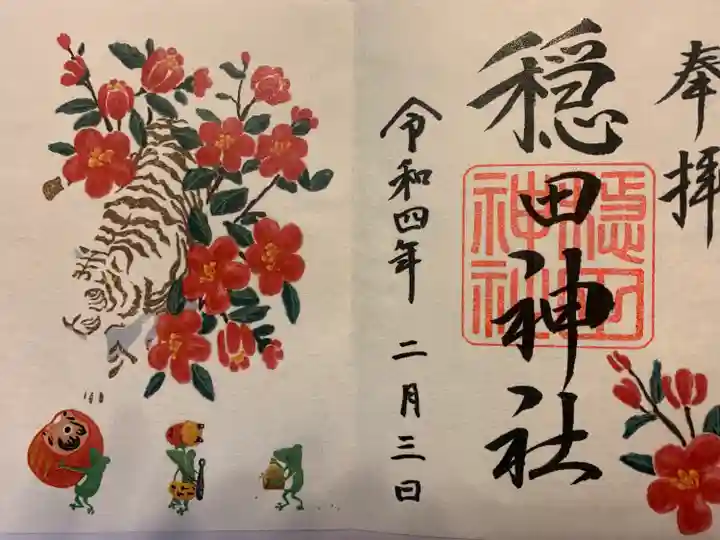 奉拝
穏田神社
穏田神社
令和四年 二月三日